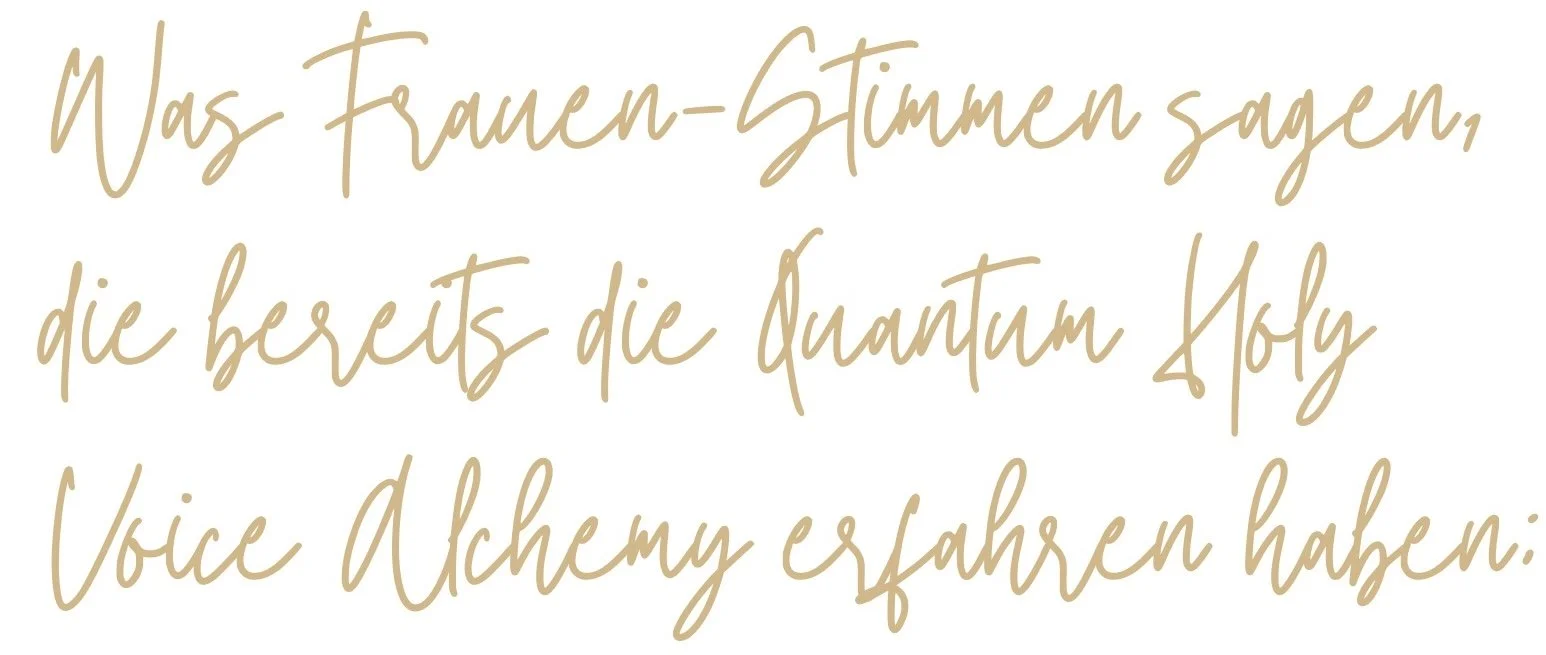 Was Frauen-Stimmen sagen,
die bereits die Quantum Holy
Voice Alchemy erfahren haben: